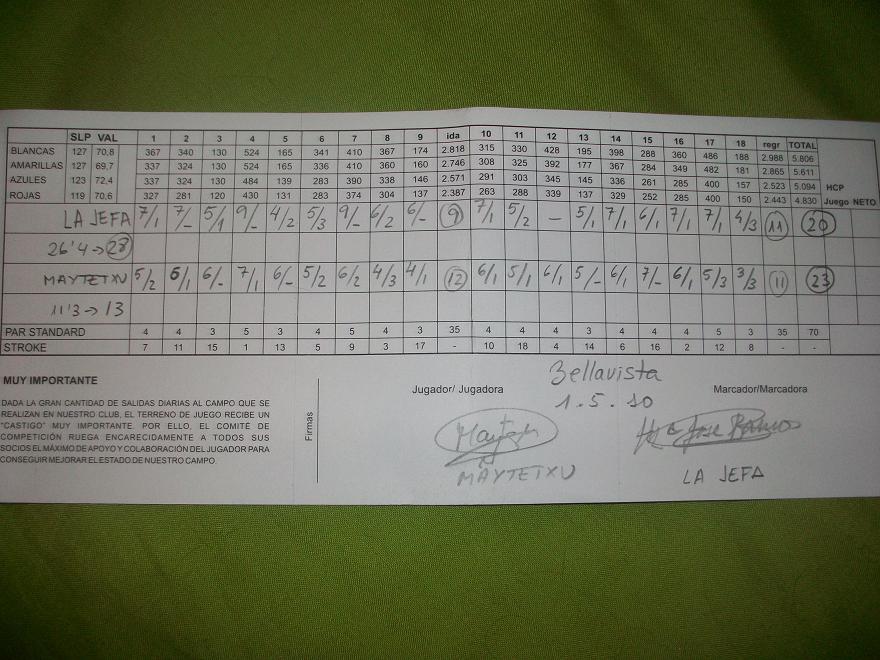 SLP VAL 1 2 3 4 5 6 7 8 9 ida 10 11 12 13 14 15 16 17 18 regr TOTAL
BLANCAS 127 70,8 367 340 130 524 165 341 410 367 174 2.818 315 330 428 195 398 288 360 486 188 2.988 5.806
AMARILLAS 127 69,7 337 324 130 524 165 336 410 360 160 2.746 308 325 392 177 367 284 349 482 181 2.865 5.611
AZULES 123 72,4 337 324 130 484 139 283 390 338 146 2.571 291 303 345 145 336 261 285 400 157 2.523 5.094 HCP
ROJAS 119 70,6 327 281 120 430 131 283 374 304 137 2.387 263 288 339 137 329 252 285 400 150 2.443 4.830 Juego NETO
LA JEFA 7/1 7/- 5/1 9/- 4/2 5/3 9/- 6/2 6/- 9 7/1 5/2 - 5/1 7/1 6/1 7/1 7/1 4/3 11 20
26'4 → 28
MAYTETXU 5/2 6/1 6/- 7/1 6/- 5/2 6/2 4/3 4/1 12 6/1 5/1 6/1 5/- 6/1 7/- 6/1 5/3 3/3 11 23
11'3 → 13
PAR STANDARD 4 4 3 5 3 4 5 4 3 35 4 4 4 3 4 4 4 5 3 35 70
STROKE 7 11 15 1 13 5 9 3 17 - 10 18 4 14 6 16 2 12 8 - -
MUY IMPORTANTE
DADA LA GRAN CANTIDAD DE SALIDAS DIARIAS AL CAMPO QUE SE
REALIZAN EN NUESTRO CLUB, EL TERRENO DE JUEGO RECIBE UN
"CASTIGO" MUY IMPORTANTE. POR ELLO, EL COMITÉ DE
COMPETICIÓN RUEGA ENCARECIDAMENTE A TODOS SUS
SOCIOS EL MÁXIMO DE APOYO Y COLABORACIÓN DEL JUGADOR PARA
CONSEGUIR MEJORAR EL ESTADO DE NUESTRO CAMPO.
Firmas
Bellavista
Jugador/ Jugadora
Marcador/Marcadora
1.5.10
MAYTETXU
LA JEFA